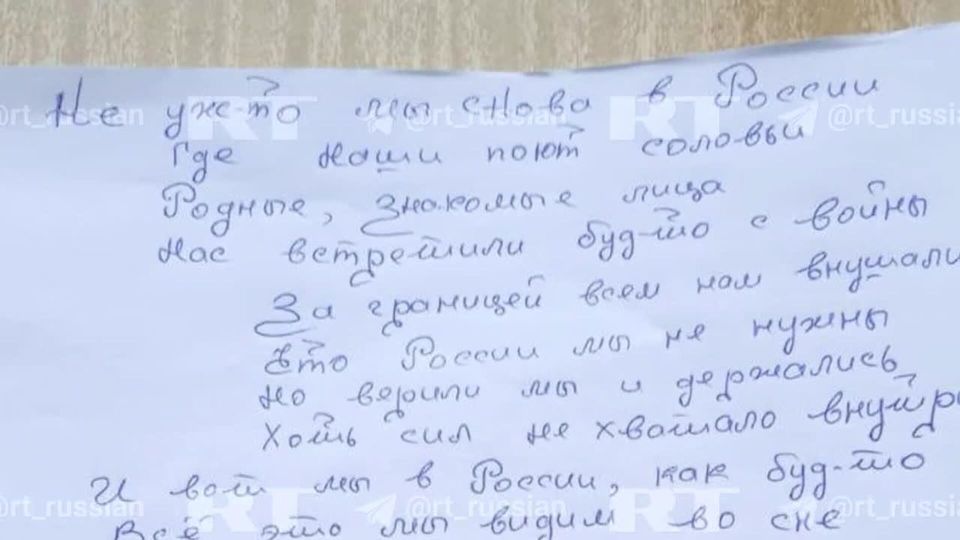 Не уже-то мы снова в России
Где наши поют соло-вьи
Родные, знакомые лица
Нас встретили буд-то с войны
За границей всем нам внушали
Что России мы не нужны
Но верили мы и держались
Хоть сил не хватало внутр
И вот мы в России, как буд-то
Всё это мы видим во сне
RT @rt_russian
RT @rt_russian